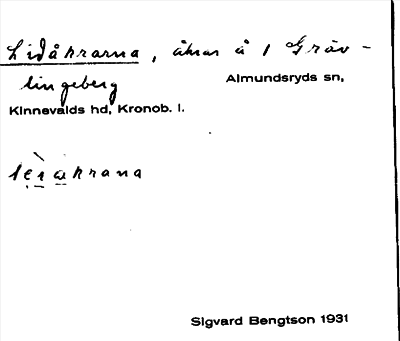 Lidåkrarna, åkrar å 1 Gräv-
lingeberg Almundsryds sn,
Kinnevalds hd, Kronob. l.
Sigvard Bengtson 1931